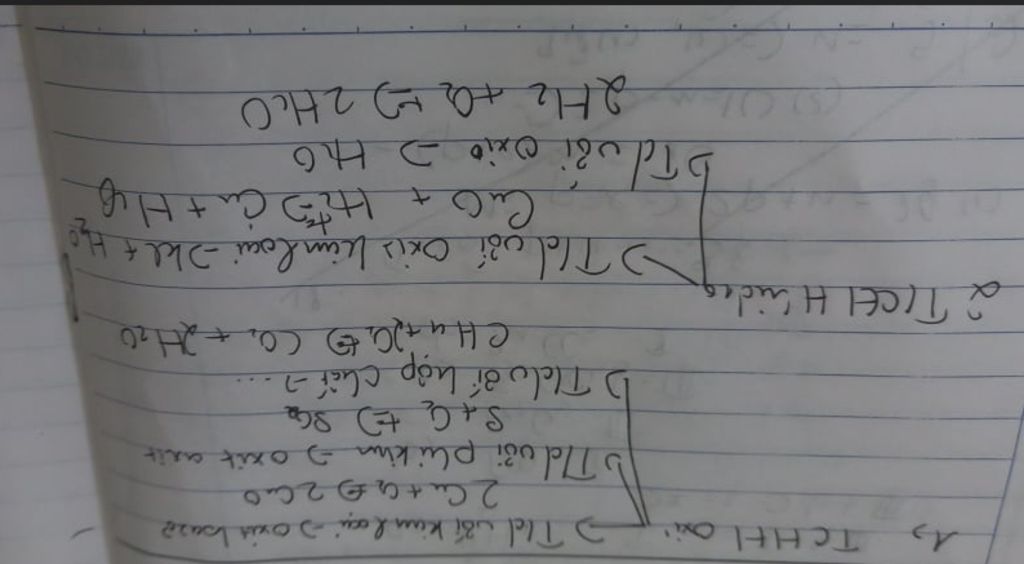 1, TCHH Oxi → T/d với kim loại → oxit bazơ
2Cu + O₂ t°→ 2CuO
→ T/d với phi kim → oxit axit
S + O₂ t°→ SO₂
→ T/d với hợp chất → ...
CH₄ + 2O₂ t°→ CO₂ + 2H₂O
2, TCHH Hidro
→ T/d với oxit kim loại → kl + H₂O
CuO + H₂ t°→ Cu + H₂O
→ T/d với oxi → H₂O
2H₂ + O₂ t°→ 2H₂O